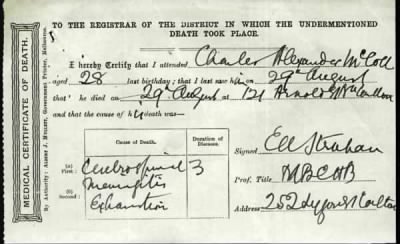 TO THE REGISTRAR OF THE DISTRICT IN WHICH THE UNDERMENTIONED
DEATH TOOK PLACE.
MEDICAL CERTIFICATE OF DEATH.
By Authority: Albert J. Mullett, Government Printer, Melbourne.
I hereby Certify that I attended Charles Alexander McColl
aged 28 last birthday; that I last saw him on 29th August
that he died on 29th August at 121 Arnold St Nth Carlton
and that the cause of his death was—
Cause of Death.
Duration of Diseases.
(a) First
Cerebro spinal 3
Meningitis
(b) Second
Exhaustion
Signed E Strahan
Prof. Title M B C H B
Address 252 Lygon St Carlton